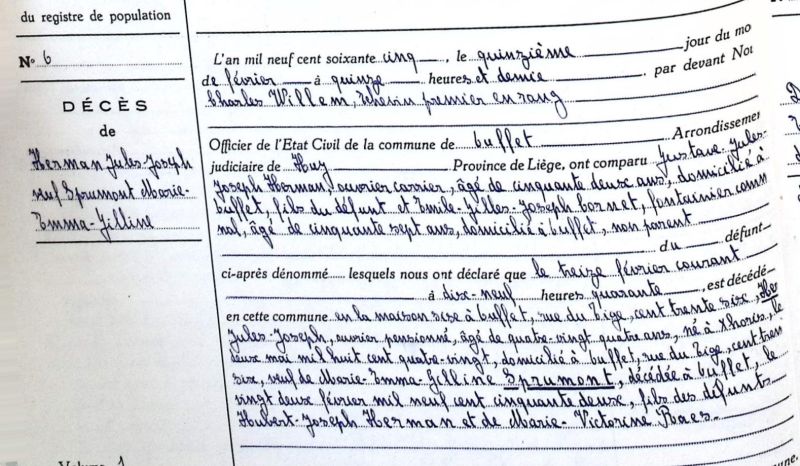 du registre de population
N° 6
DÉCÈS
de
Herman Jules-Joseph
veuf Sprumont Marie-
Emma-Gilline
L'an mil neuf cent soixante cinq, le quinzième jour du mo
de février à quinze heures et demie, par devant Nou
Charles Willem, échevin premier en rang
Officier de l'Etat Civil de la commune de Ouffet Arrondissemen
judiciaire de Huy Province de Liège, ont comparu Gustave-Jules-
Joseph Herman, ouvrier carrier, âgé de cinquante deux ans, domicilié à
Ouffet, fils du défunt et Emile-Gilles-Joseph Cornet, fontainier comm
nal, âgé de cinquante sept ans, domicilié à Ouffet, non parent
du défunt
ci-après dénommé lesquels nous ont déclaré que le treize février courant
à dix-neuf heures quarante, est décédé
en cette commune en la maison sise à Ouffet, rue du Tige, cent trente six, Her
Jules-Joseph, ouvrier pensionné, âgé de quatre-vingt quatre ans, né à Xhoris, le
deux mai mil huit cent quatre-vingt, domicilié à Ouffet, rue du Tige, cent tren
six, veuf de Marie-Emma-Gilline Sprumont, décédée à Ouffet, le
vingt deux février mil neuf cent cinquante deux, fils des défunts
Hubert-Joseph Herman et de Marie-Victorine Raes